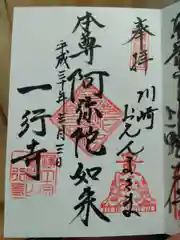 奉拝
川崎
おえんまさま
本尊 阿弥陀如来
平成三十年 三月三日
一行寺